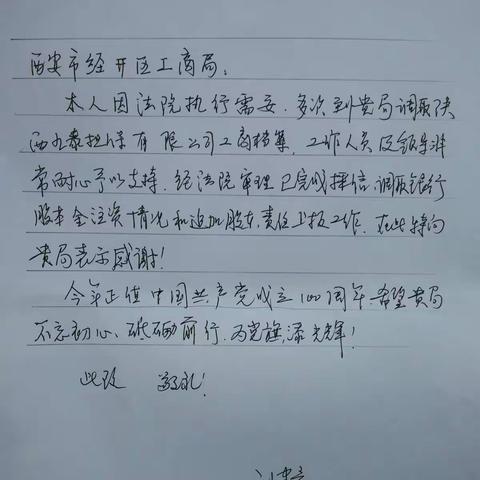 西安市经开区工商局:
本人因法院执行需要,多次到贵局调取陕
西九泰担保有限公司工商档案,工作人员及领导非
常耐心予以支持,经法院审理已完成采信,调取银行
股本金注资情况和追加股东责任上报工作,在此特向
贵局表示感谢!
今年正值中国共产党成立100周年,希望贵局
不忘初心、砥砺前行,为党旗添光辉!
此致 敬礼!